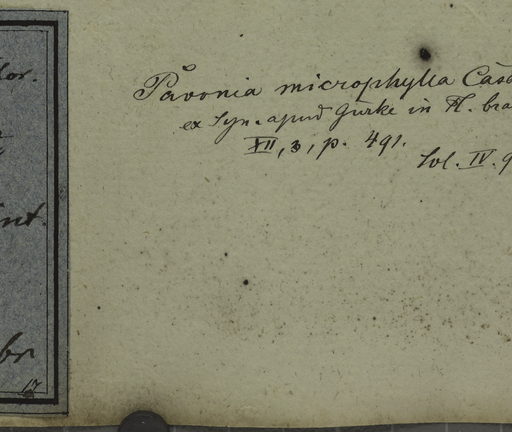 lor.
int.
br
17
Pavonia microphylla Cas
ex syn. apud Gürke in Fl. bra
XII, 3, p. 491.
Sol. IV. 9